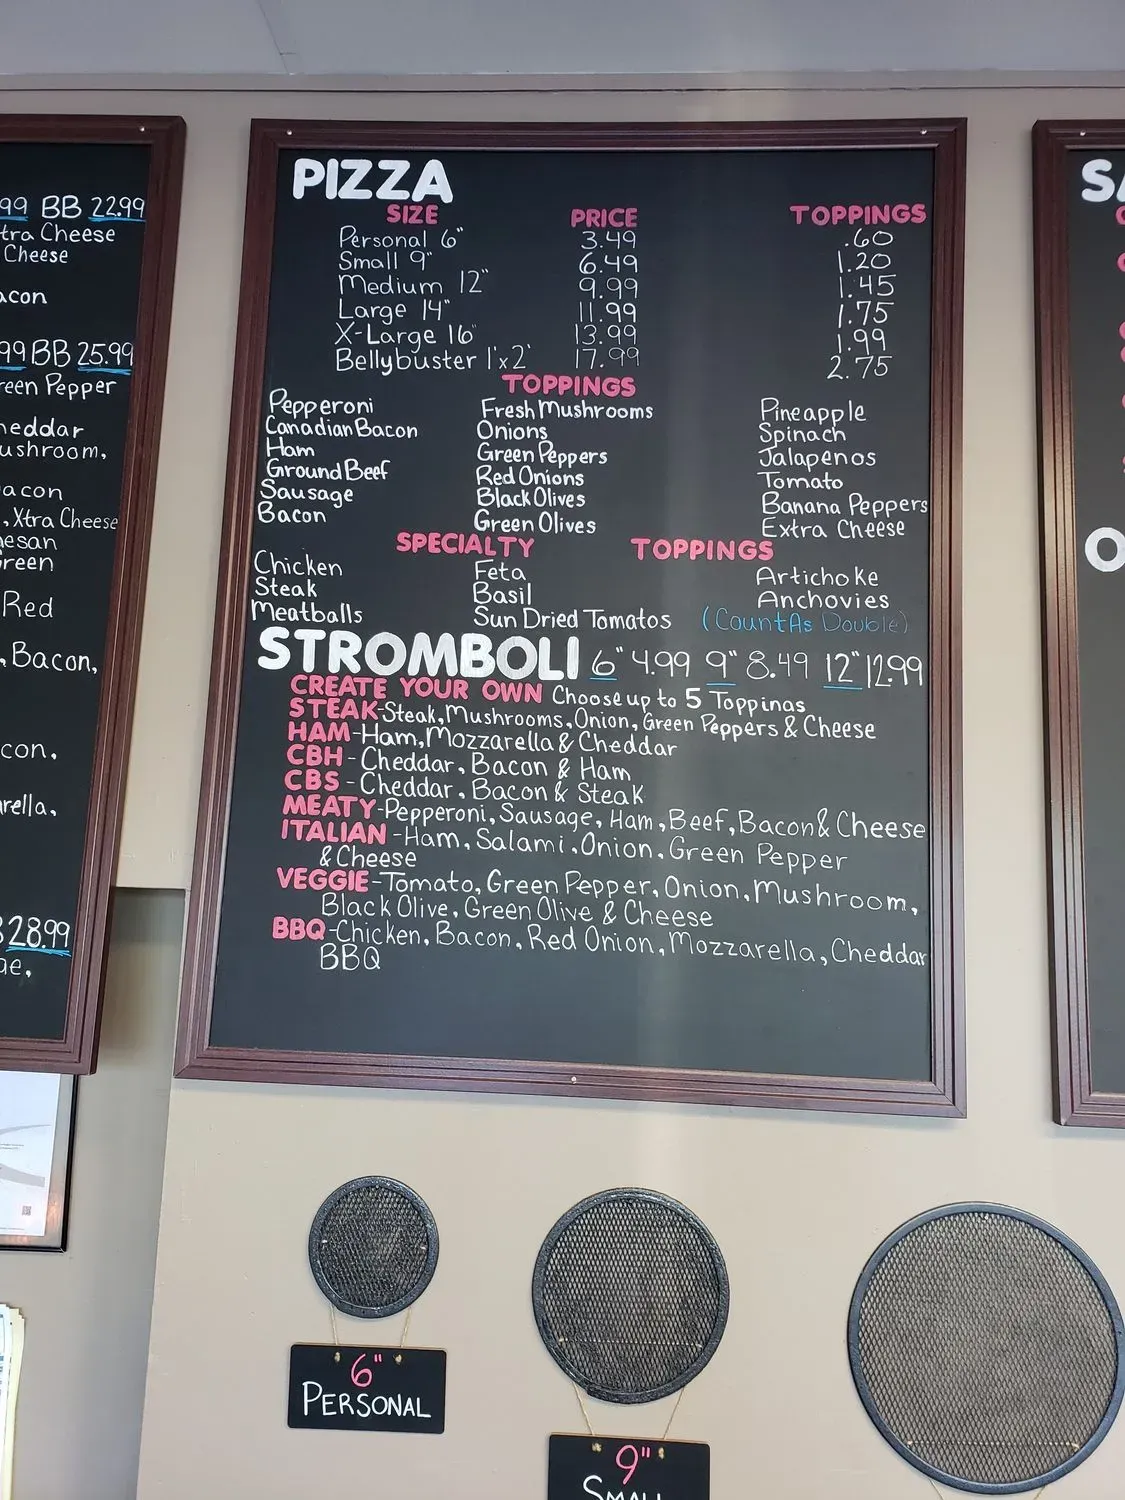 99 BB 22.99
tra Cheese
Cheese
acon
99 BB 25.99
reen Pepper
heddar
ushroom,
acon
, Xtra Cheese
mesan
Green
Red
, Bacon,
con,
rella,
28.99
PIZZA
SIZE PRICE TOPPINGS
Personal 6" 3.49 .60
Small 9" 6.49 1.20
Medium 12" 9.99 1.45
Large 14" 11.99 1.75
X-Large 16" 13.99 1.99
Bellybuster 1'x2' 17.99 2.75
TOPPINGS
Pepperoni Fresh Mushrooms Pineapple
Canadian Bacon Onions Spinach
Ham Green Peppers Jalapenos
Ground Beef Red Onions Tomato
Sausage Black Olives Banana Peppers
Bacon Green Olives Extra Cheese
SPECIALTY TOPPINGS
Chicken Feta Artichoke
Steak Basil Anchovies
Meatballs Sun Dried Tomatos (Count As Double)
STROMBOLI 6" 4.99 9" 8.49 12" 12.99
CREATE YOUR OWN Choose up to 5 Toppings
STEAK-Steak, Mushrooms, Onion, Green Peppers & Cheese
HAM-Ham, Mozzarella & Cheddar
CBH - Cheddar, Bacon & Ham
CBS - Cheddar, Bacon & Steak
MEATY-Pepperoni, Sausage, Ham, Beef, Bacon & Cheese
ITALIAN -Ham, Salami, Onion, Green Pepper
& Cheese
VEGGIE-Tomato, Green Pepper, Onion, Mushroom,
Black Olive, Green Olive & Cheese
BBQ-Chicken, Bacon, Red Onion, Mozzarella, Cheddar
BBQ
SA
O
6"
PERSONAL
9"
SMALL